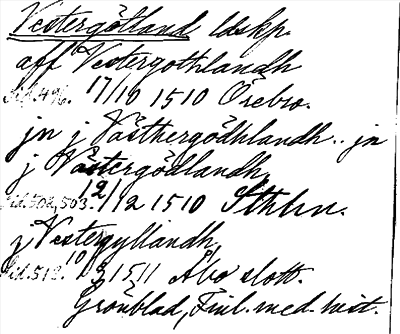 Vestergötland ldskp.
aff Vestergothlandh
Sid. 496. 17/10 1510 Örebro.
jn j Västhergödhlandh.. jn
j Västergödlandh,
Sid. 502, 503. 12/12 1510 Sthlm.
j Vestergyllandh,
Sid. 512. 10/3 1511 Åbo slott.
Grönblad, Finl. med. hist.